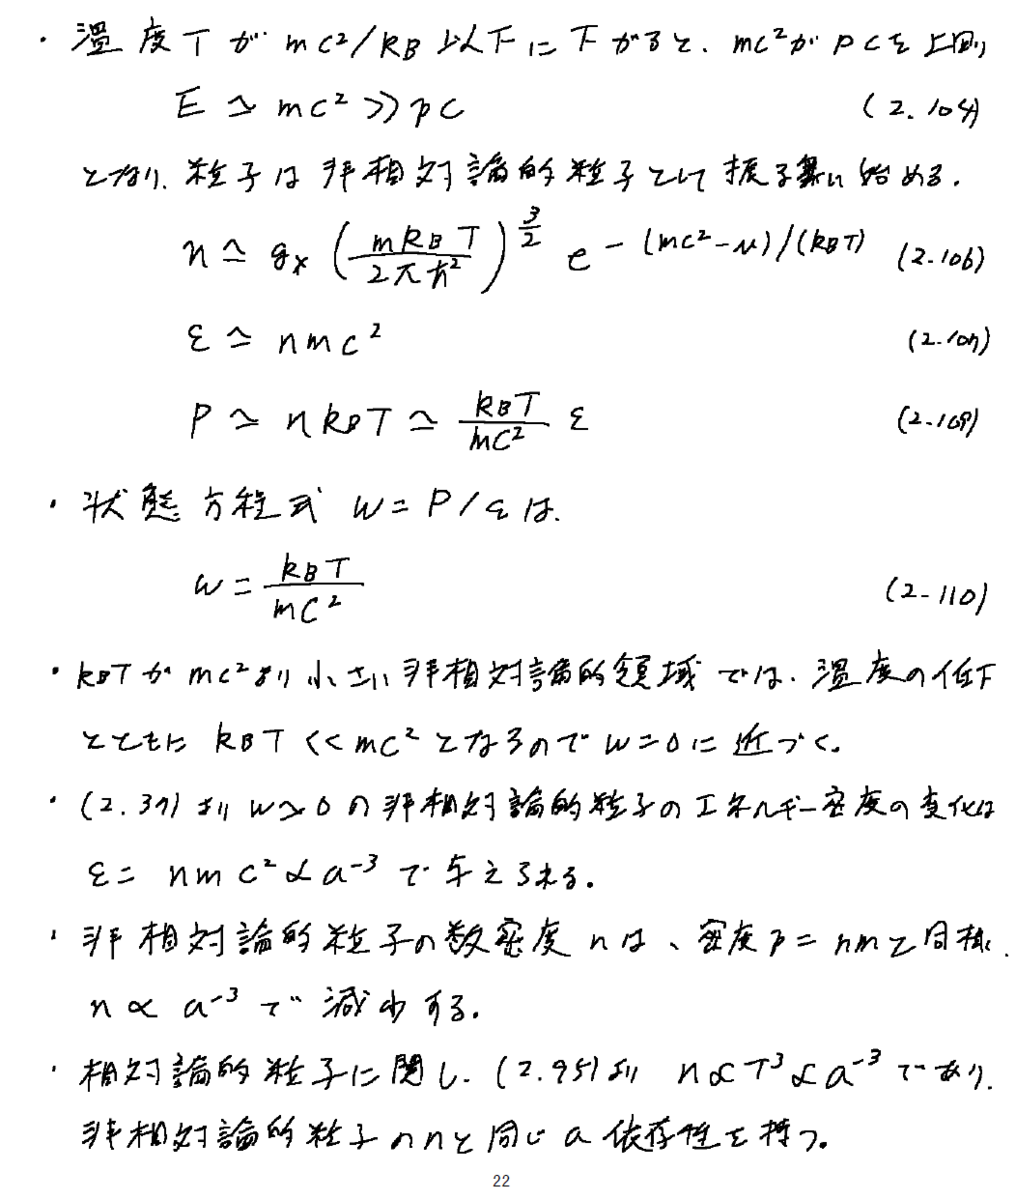 ・温度Tがmc²/kBT以下に下がると、mc²がpcを上回り
E ≃ mc² ≫ pc (2.104)
となり、粒子は非相対論的粒子として振る舞い始める.
n ≃ gx (mkBT/2πħ²)^{3/2} e^{-(mc²-μ)/(kBT)} (2.106)
ε ≃ nmc² (2.107)
P ≃ nkBT ≃ kBT/mc² ε (2.109)
・状態方程式 w = P/ε は.
w = kBT/mc² (2-110)
・kBTがmc²より小さい非相対論的領域では、温度の低下
とともに kBT << mc² となるので w=0 に近づく。
・(2.37)より w≃0 の非相対論的粒子のエネルギー密度の変化は
ε = nmc² ∝ a⁻³ で与えられる.
・非相対論的粒子の数密度 n は、密度ρ = nm と同様に
n ∝ a⁻³ で減少する.
・相対論的粒子に関し、(2.95)より n ∝ T³ ∝ a⁻³ であり、
非相対論的粒子のnと同じ a 依存性を持つ。
22